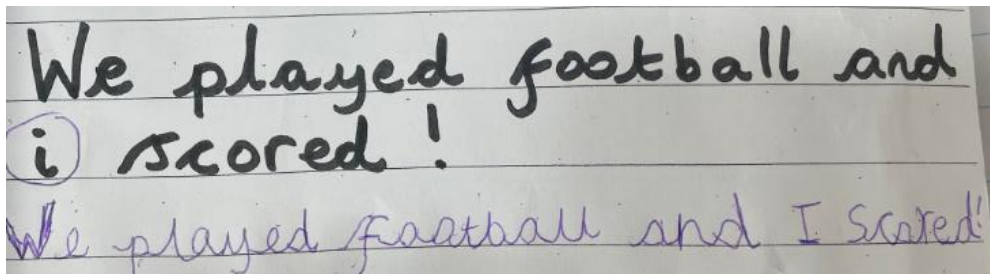 We played football and
i scored!
We played football and I Scored!